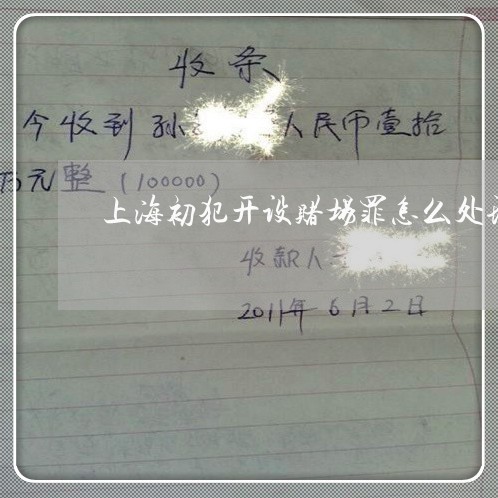 收条
今收到孙 人民币壹拾
万元整(100000)
上海初犯开设赌场罪怎么处
收款人
2011年6月2日